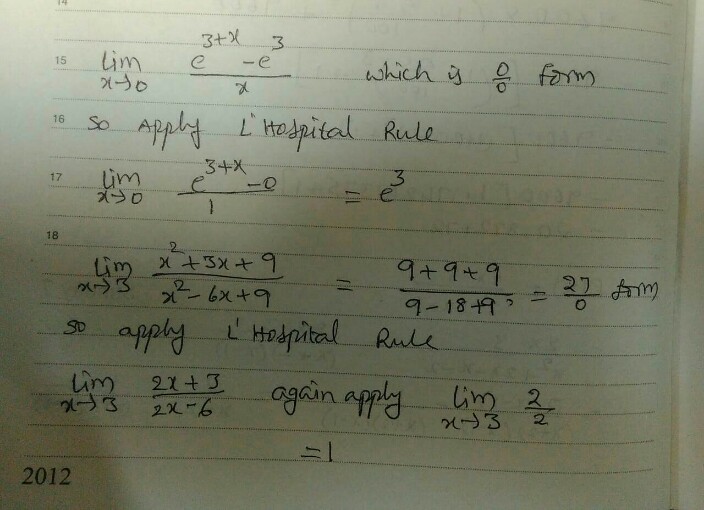 14
15 lim x→0 (e^(3+x) - e^3)/x which is 0/0 form
16 so Apply L'Hospital Rule
17 lim x→0 (e^(3+x) - 0)/1 = e^3
18
lim x→3 (x^2 + 3x + 9)/(x^2 - 6x + 9) = (9 + 9 + 9)/(9 - 18 + 9) = 27/0 form
so apply L'Hospital Rule
lim x→3 (2x + 3)/(2x - 6) again apply lim x→3 2/2
= 1
2012